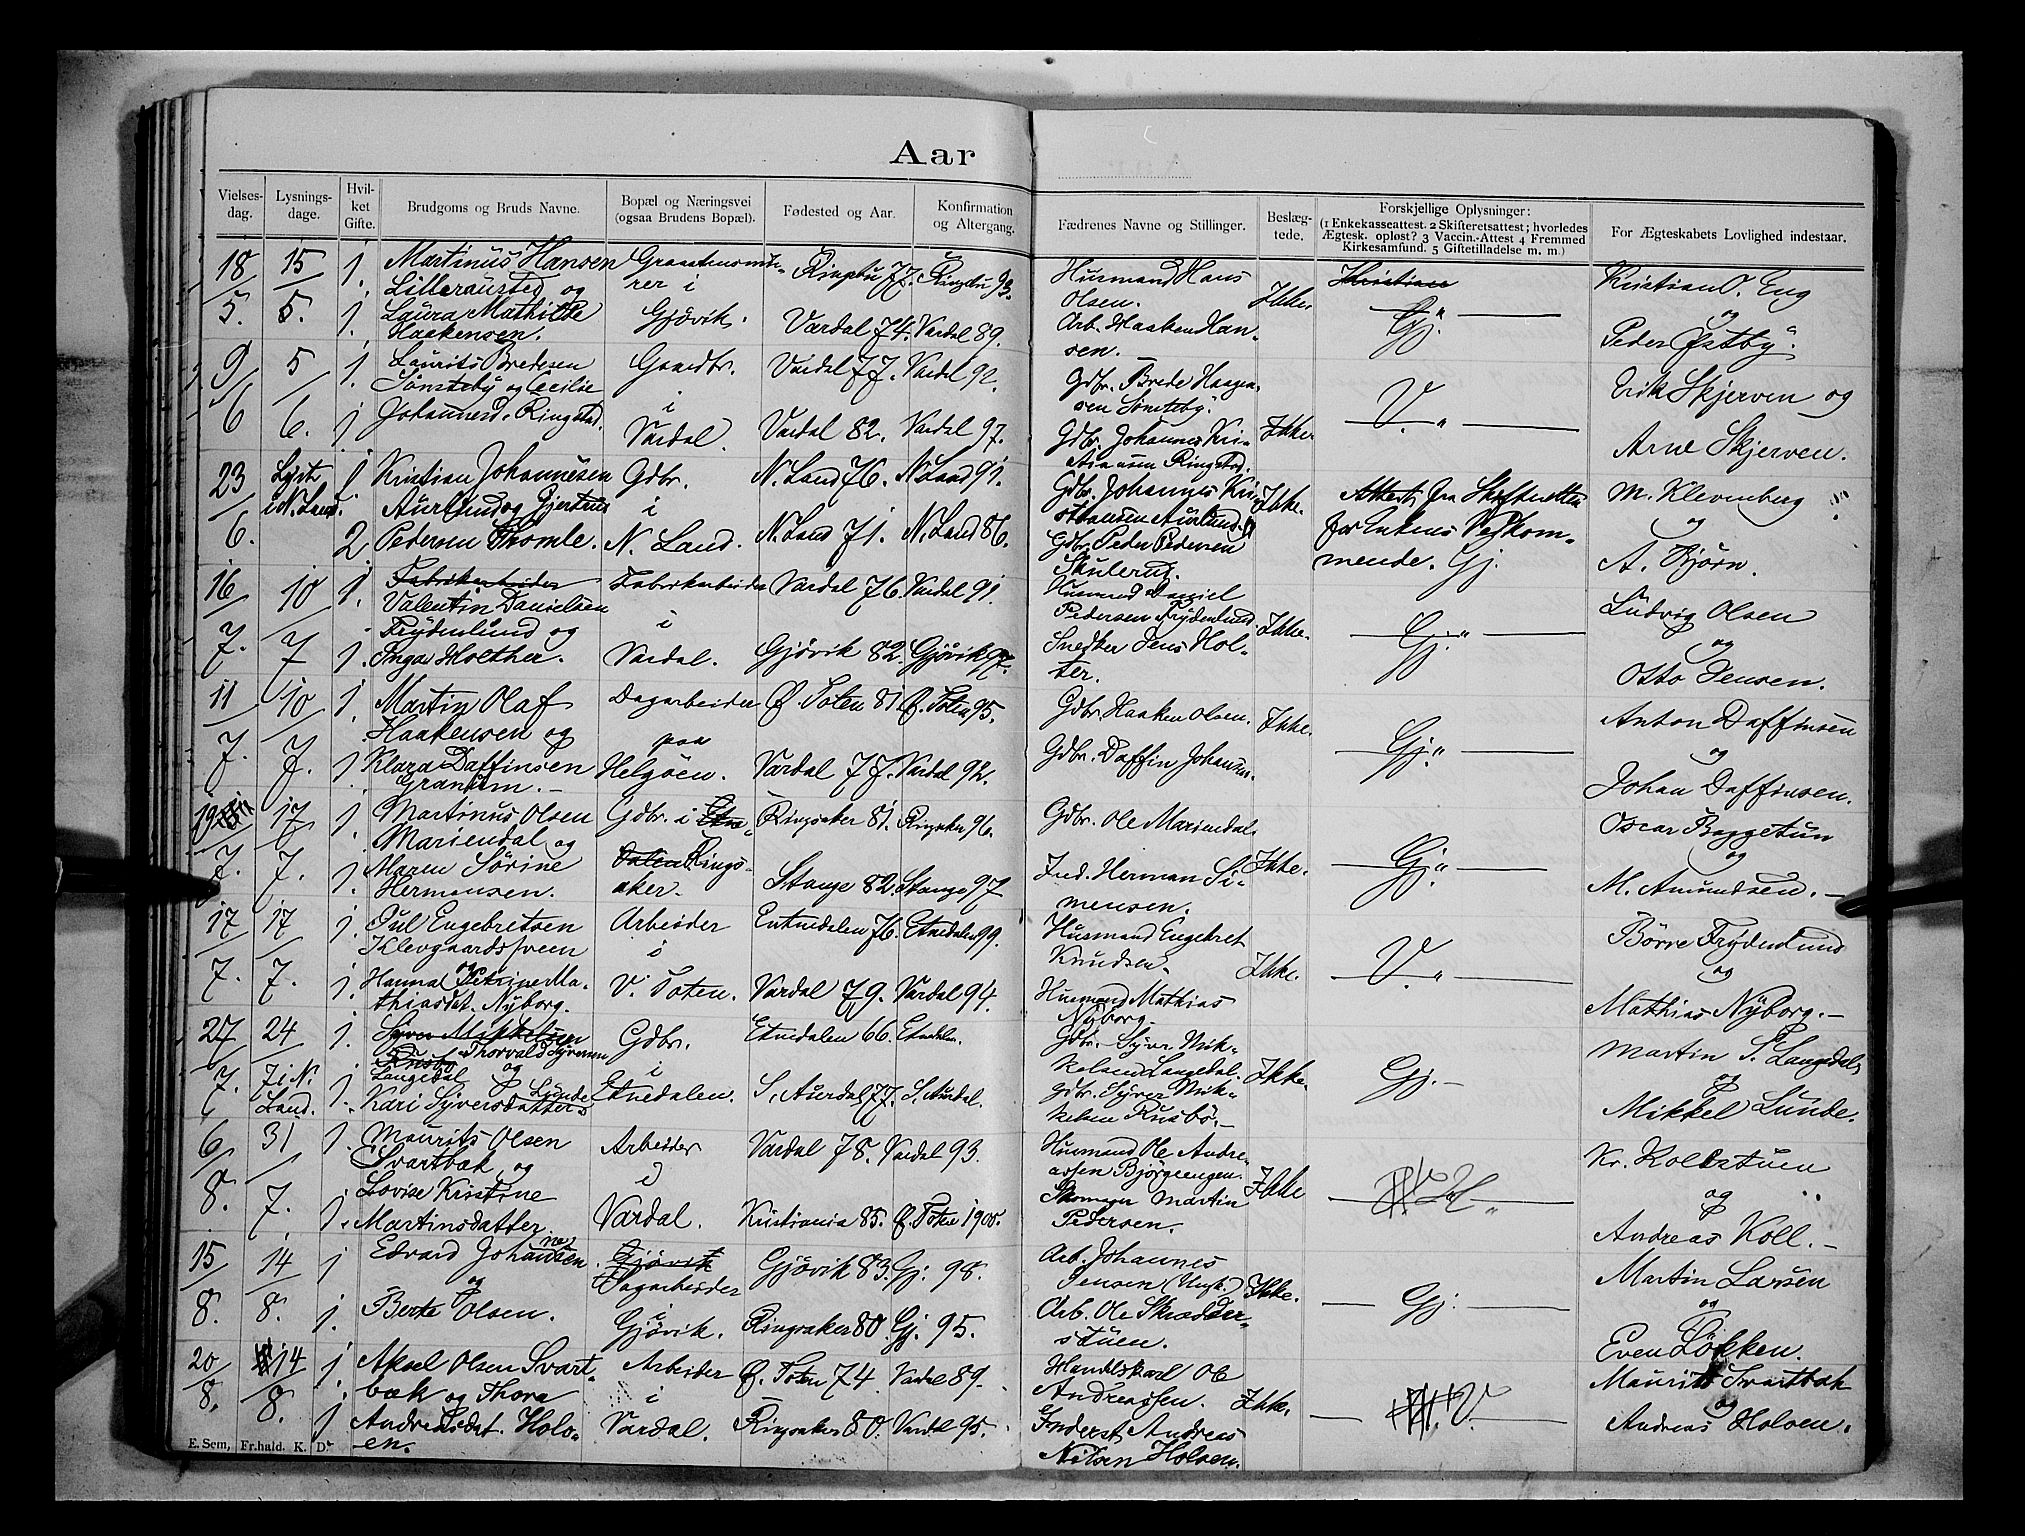 Aar
Vielses-
dag.
Lysnings-
dage.
Hvil-
ket
Gifte.
Brudgoms og Bruds Navne.
Bopæl og Næringsvei
(ogsaa Brudens Bopæl).
Fødested og Aar.
Konfirmation
og Altergang.
Fædrenes Navne og Stillinger.
Beslæg-
tede.
Forskjellige Oplysninger:
(1 Enkekasseattest. 2 Skifteretsattest; hvorledes
Ægtesk. opløst? 3 Vaccin.-Attest 4 Fremmed
Kirkesamfund. 5 Giftetilladelse m. m.)
For Ægteskabets Lovlighed indestaar.
18/5. 15/5. 1. Martinus Hansen
Lilleransted og
1. Laura Mathilde
Haakensen.
i
Gjøvik.
Ringebu 77. Ringebu 93.
Vardal 74. Vardal 89.
Husmand Hans
Olsen.
Arb. Haaken Han-
sen.
Ikke
Kristian
— Gj. " —
Kristian O. Eng
og
Peder Østby.
9/6 5/6. 1. Laurits Bredesen
Sønsteby og Cecilie
1 Johannesd. Ringstad.
Gaardbr.
i
Vardal.
Vardal 77. Vardal 92.
Vardal 82. Vardal 97.
Gdbr. Brede Haagen-
sen Sønsteby.
Gdbr. Johannes Kri-
stiansen Ringstad.
Ikke
— V. " —
Erik Skjerven og
Arne Skjerven.
23/6. Lyst
i N. Land. 1 Kristian Johannesen
Aurlund og Gjertrud
2 Pedersen Thomle.
Gdbr.
i
N. Land.
N. Land 76. N. Land 91.
N. Land 71. N. Land 86.
Gdbr. Johannes Kri-
stiansen Aurlund.
Gdbr. Peder Pedersen
Skulerud.
Ikke.
Attest fra Skifteretten
for Enkens Vedkom-
mende. Gj.
M. Klevenberg
og
A. Bjørn.
16/7. 10/7 1. Fabrikarbeider
Valentin Danielsen
Frydenlund og
1. Inga Holther.
Fabrikarbeider
i
Vardal.
Vardal 76. Vardal 91.
Gjøvik 82. Gjøvik 97.
Husmand Daniel
Pedersen Frydenlund.
Snedker Jens Hol-
ter.
Ikke.
— Gj. " —
Ludvig Olsen
og
Otto Jensen.
11/7. 10/7. 1. Martin Olaf
Haakensen og
1 Klara Daffinsen
Granum.
Dagarbeider
paa
Helgøen.
Ø. Toten 81. Ø. Toten 95.
Vardal 77. Vardal 92.
Gdbr. Haaken Olsen.
Gdbr. Daffin Johansen.
Ikke.
— Gj. " —
Anton Daffinsen
og
Johan Daffinsen.
19/7. 17/7. 1. Martinus Olsen
Mariendal og
1. Maren Sørine
Hermansen.
Gdbr. i
Rings-
aker.
Ringsaker 81. Ringsaker 96.
Stange 82. Stange 97
Gdbr. Ole Mariendal.
Ind. Herman Si-
mensen.
Ikke.
— Gj. " —
Oscar Baggetun
og
M. Amundsen. —
17/7. 17/7. 1. Jul Engebretsen
Klevgaardssveen
og
1. Hanna Petrine Ma-
thiasdat. Nyborg.
Arbeider
i
V. Toten.
Etnedalen 76. Etnedalen 99.
Vardal 79. Vardal 94.
Husmand Engebret
Knudsen.
Husmand Mathias
Nyborg.
Ikke.
— V. " —
Børre Frydenlund
og
Mathias Nyborg. —
27/7. 24/7 i N.
Land. 1. Syver Mikkelsen
Rusbø Thorvald Syversen
Langedal og
1. Kari Syversdatter Lunde
Gdbr.
i
Etnedalen.
Etnedalen 66. Etnedalen.
S. Aurdal 77. S. Aurdal.
Gdbr. Syver Mik-
kelsen Langedal.
Gdbr. Syver Mik-
kelsen Rusbø. —
Ikke.
Gj. —
Martin S. Langedal
og
Mikkel Lunde.
6/8. 31/7. 1. Maurits Olsen
Svartbæk og
Lovise Kristine
1. Martinsdatter.
Arbeider
i
Vardal.
Vardal 78. Vardal 93.
Kristiania 85. Ø. Toten 1900.
Husmand Ole Andre-
assen Bjørgeengen.
Skomager Martin
Pedersen.
Ikke
Kr. Kollstuen
og
Andreas Koll. —
15/8. 14/8. 1 Edvard Johannesen
og
1. Berte Olsen.
Gjøvik
Dagarbeider
i
Gjøvik.
Gjøvik 83. Gj. 98.
Ringsaker 80. Gj. 95.
Arb. Johannes
Jensen (Ungk.)
Arb. Ole Skrædder-
stuen.
Ikke.
— Gj. —
Martin Larsen
og
Even Løkken.
20/8. 14/8. 1 Aksel Olsen Svart-
bæk og Thora
1 Andreasdat. Holv-
en.
Arbeider
i
Vardal.
Ø. Toten 74. Vardal 89.
Ringsaker 80. Vardal 95.
Handelskarl Ole
Andreassen.
Inderst Andreas
Nilsen Holven.
Ikke.
V.
Maurits Svartbæk
og
Andreas Holven.
E. Sem, Fr.hald. K. D.